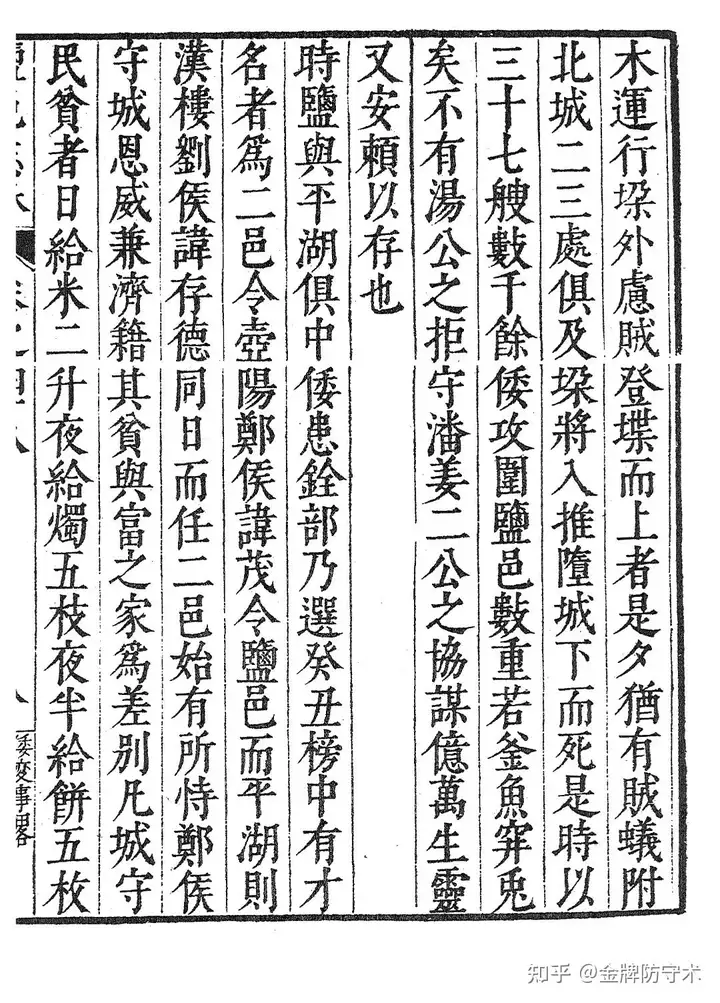 木運行垜外慮賊登堞而上者是夕猶有賊蟻附
北城二三處俱及垜將入推墮城下而死是時以
三十七艘數千餘倭攻圍鹽邑數重若釜魚穽兎
矣不有湯公之拒守潘姜二公之協謀億萬生靈
又安賴以存也
時鹽與平湖俱中倭患銓部乃選癸丑榜中有才
名者爲二邑令壺陽鄭侯諱茂令鹽邑而平湖則
漢樓劉侯諱存德同日而任二邑始有所恃鄭侯
守城恩威兼濟籍其貧與富之家爲差別凡城守
民貧者日給米二升夜給燭五枝夜半給餅五枚
倭變事略
知乎 @金牌防守术